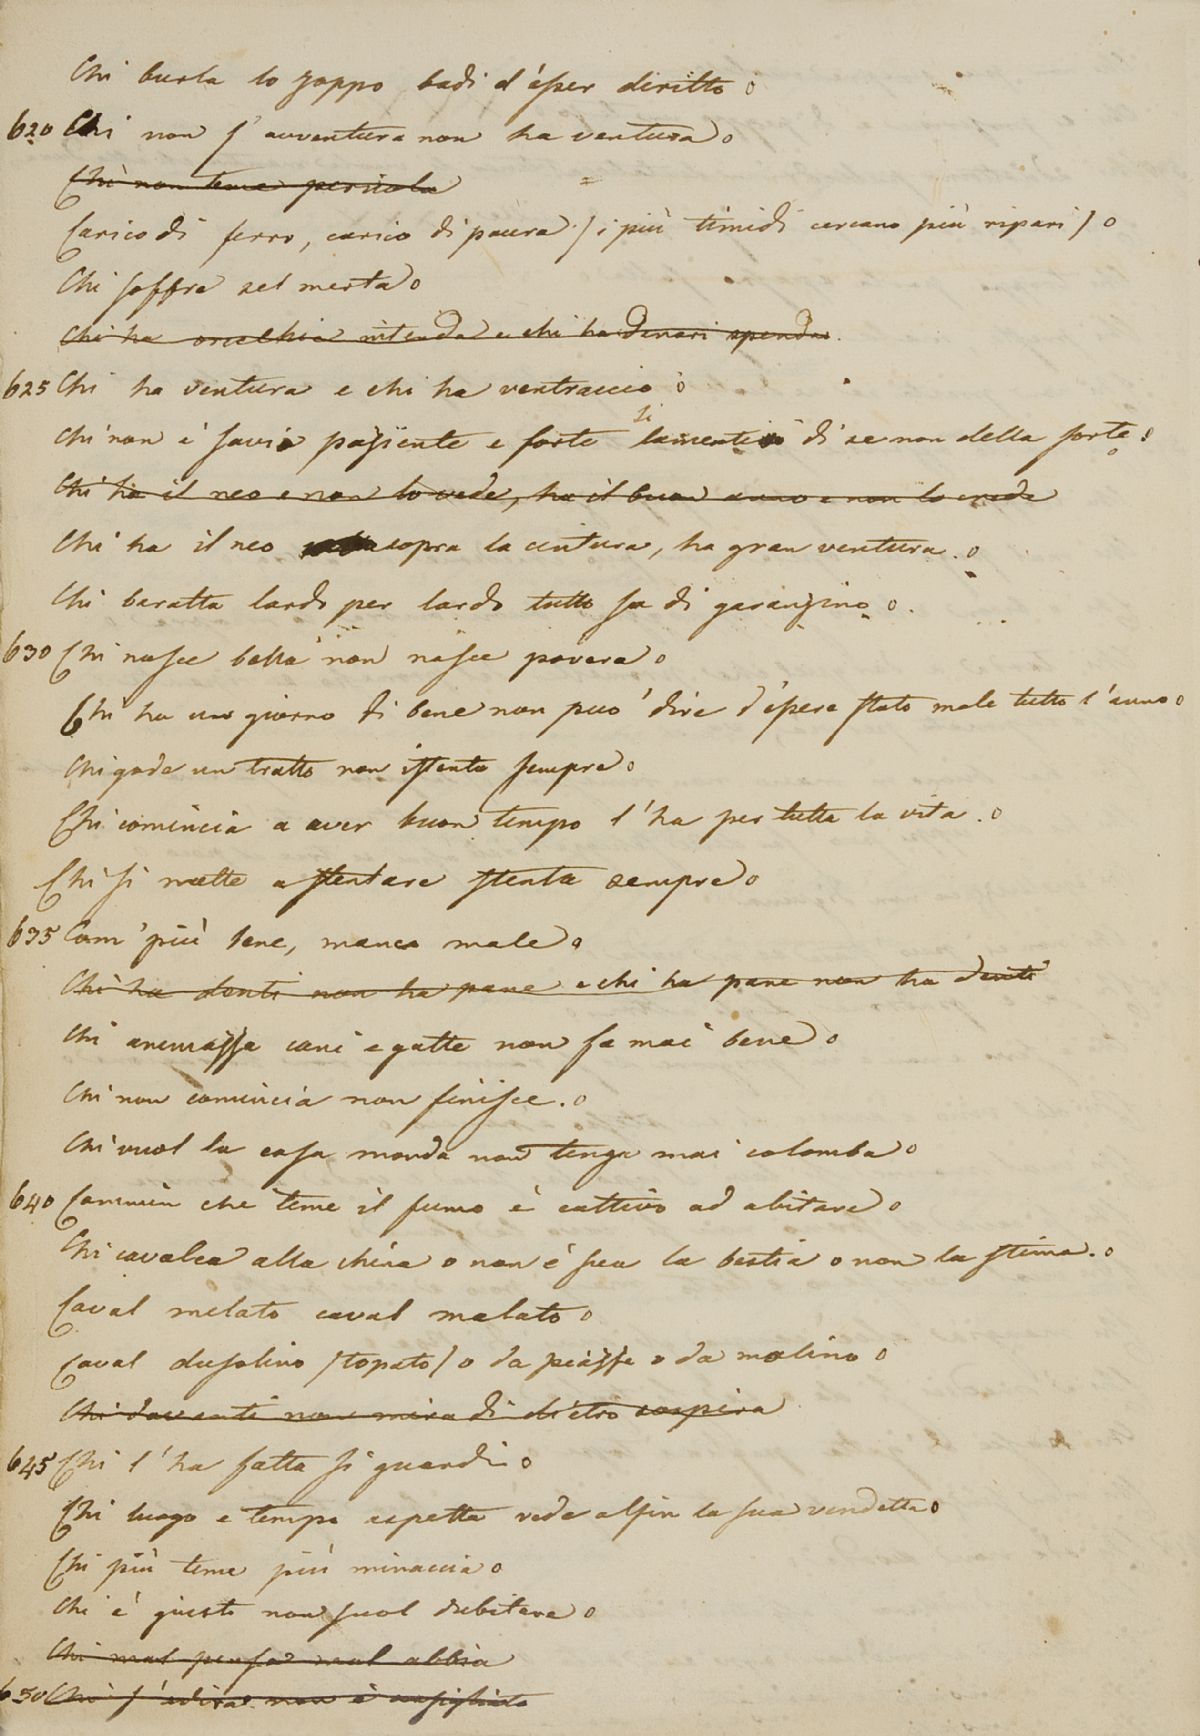 Chi burla lo zoppo badi d'esser diritto
620 Chi non s'avventura non ha ventura
Chi non teme pericolo
Carico di ferro, carico di paura / i più timidi cercano più ripari /
Chi soffre sel merta
Chi ha orecchie intenda e chi ha denari spenda.
625 Chi ha ventura e chi ha ventraccio
Chi non è savio paziente e forte si lamenti di se non della sorte.
Chi ha il neo e non lo vede, ha il buon anno e non lo crede
Chi ha il neo sopra la cintura, ha gran ventura.
Chi baratta lardo per lardo tutto sa di
630 Chi nasce bella non nasce povera
Chi ha un giorno di bene non può dire d'essere stato male tutto l'anno
Chi gode un tratto non istenta sempre
Chi comincia a aver buon tempo l'ha per tutta la vita.
Chi si mette a stentare stenta sempre
635 Com' più bene, manco male
Chi ha denti non ha pane e chi ha pane non ha denti
Chi ammazza cani e gatte non fa mai bene
Chi non comincia non finisce.
Chi vuol la casa monda non tenga mai colomba
640 Cammin che teme il fumo è cattivo ad abitare
Chi cavalca alla china o non è sua la bestia o non la stima.
Caval melato caval malato
Caval /topato/ o da piazza o da molino
Chi davanti non mira di dietro sospira
645 Chi l'ha fatta si guardi
Chi luogo e tempo aspetta vede alfin la sua vendetta
Chi più teme più minaccia
Chi è giusto non suol dubitare
Chi mal pensa mal abbia
650 Chi s'adira non è consigliato